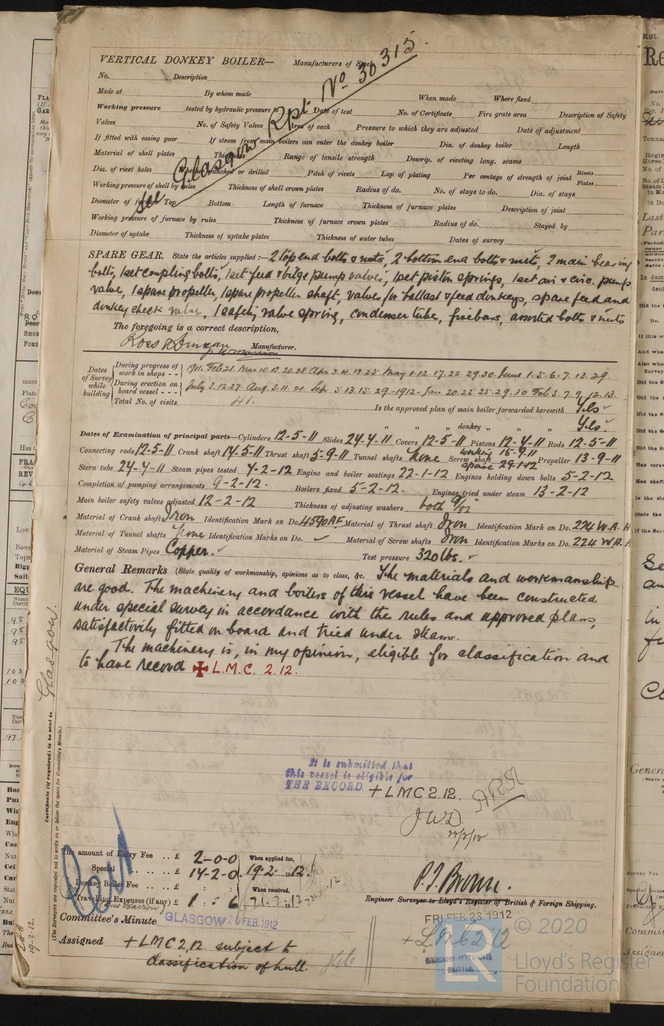 VERTICAL DONKEY BOILER— Manufacturers of Steel
See Glasgow Rpt. No 30315.
No. Description
Made at By whom made When made Where fixed
Working pressure tested by hydraulic pressure to Date of test No. of Certificate Fire grate area Description of Safety
Valves No. of Safety Valves Area of each Pressure to which they are adjusted Date of adjustment
If fitted with easing gear If steam from main boilers can enter the donkey boiler Dia. of donkey boiler Length
Material of shell plates Thickness Range of tensile strength Descrip. of riveting long. seams
Dia. of rivet holes Whether punched or drilled Pitch of rivets Lap of plating Per centage of strength of joint Rivets Plates
Working pressure of shell by rules Thickness of shell crown plates Radius of do. No. of stays to do. Dia. of stays
Diameter of furnace Top Bottom Length of furnace Thickness of furnace plates Description of joint
Working pressure of furnace by rules Thickness of furnace crown plates Radius of do. Stayed by
Diameter of uptake Thickness of uptake plates Thickness of water tubes Dates of survey
SPARE GEAR. State the articles supplied:— 2 top end bolts & nuts, 2 bottom end bolts & nuts, 2 main bearing
bolts, 1 set coupling bolts, 1 set feed & bilge pump valves, 1 set piston springs, 1 set air & circ. pump
valve, 1 spare propeller, 1 spare propeller shaft, valves for ballast & feed donkeys, spare feed and
donkey check valve, 1 safety valve spring, condenser tube, firebars, assorted bolts & nuts
The foregoing is a correct description,
Ross & Duncan Manufacturer.
Dates of Survey while building
During progress of work in shops - - 1911. Feb 21 Mar 10.13.20.28 Apr 3.4.18.25 May 1.12.17.22.29.30 June 1.5.6.7.13.29
During erection on board vessel - - - July 3.12.27. Aug. 3.11.24 Sep 5.13.15.29 - 1912 - Jan 20.22.25.29.30 Feb 5.7.9.12.13.
Total No. of visits 41. Is the approved plan of main boiler forwarded herewith Yes
" " " donkey " " " Yes
Dates of Examination of principal parts—Cylinders 12-5-11 Slides 24.4.11 Covers 12-5-11 Pistons 12-4-11 Rods 12-5-11
Connecting rods 12-5-11 Crank shaft 14.5-11 Thrust shaft 5-9-11 Tunnel shafts None Screw shaft working 15-9-11 spare 29-1-12 Propeller 13-9-11
Stern tube 24-4-11 Steam pipes tested 7-2-12 Engine and boiler seatings 22-1-12 Engines holding down bolts 5-2-12
Completion of pumping arrangements 9-2-12 Boilers fixed 5-2-12 Engines tried under steam 13-2-12
Main boiler safety valves adjusted 12-2-12 Thickness of adjusting washers both 9/32
Material of Crank shaft Iron Identification Mark on Do. 4590AF Material of Thrust shaft Iron Identification Mark on Do. 224 W.A.H
Material of Tunnel shafts None Identification Marks on Do. Material of Screw shafts Iron Identification Marks on Do. 224 W.A.H
Material of Steam Pipes Copper. Test pressure 320 lbs.
General Remarks (State quality of workmanship, opinions as to class, &c. The materials and workmanship
are good. The machinery and boilers of this vessel have been constructed
under special survey in accordance with the rules and approved plans,
satisfactorily fitted on board and tried under steam.
The machinery is, in my opinion, eligible for classification and
to have record ✠ L.M.C. 2.12.
Glasgow.
Certificate (if required) to be sent to
(The Surveyors are requested not to write on or below the space for Committee's Minute.)
It is submitted that
this vessel is eligible for
THE RECORD + LMC 2.12.
The amount of Entry Fee .. £ 2-0-0 When applied for,
Special .. .. £ 14-2-0 19.2.12.
Donkey Boiler Fee .. .. £ When received,
Travelling Expenses (if any) £ 1:6
P.T. Brown.
Engineer Surveyor to Lloyd's Register of British & Foreign Shipping.
Committee's Minute GLASGOW FEB. 1912 FRI. FEB. 23 1912
Assigned + LMC 2.12 subject to + LMC 2.12
classification of hull
MACHINERY CERTIFICATE
WRITTEN
LR © 2020
Lloyd's Register
Foundation